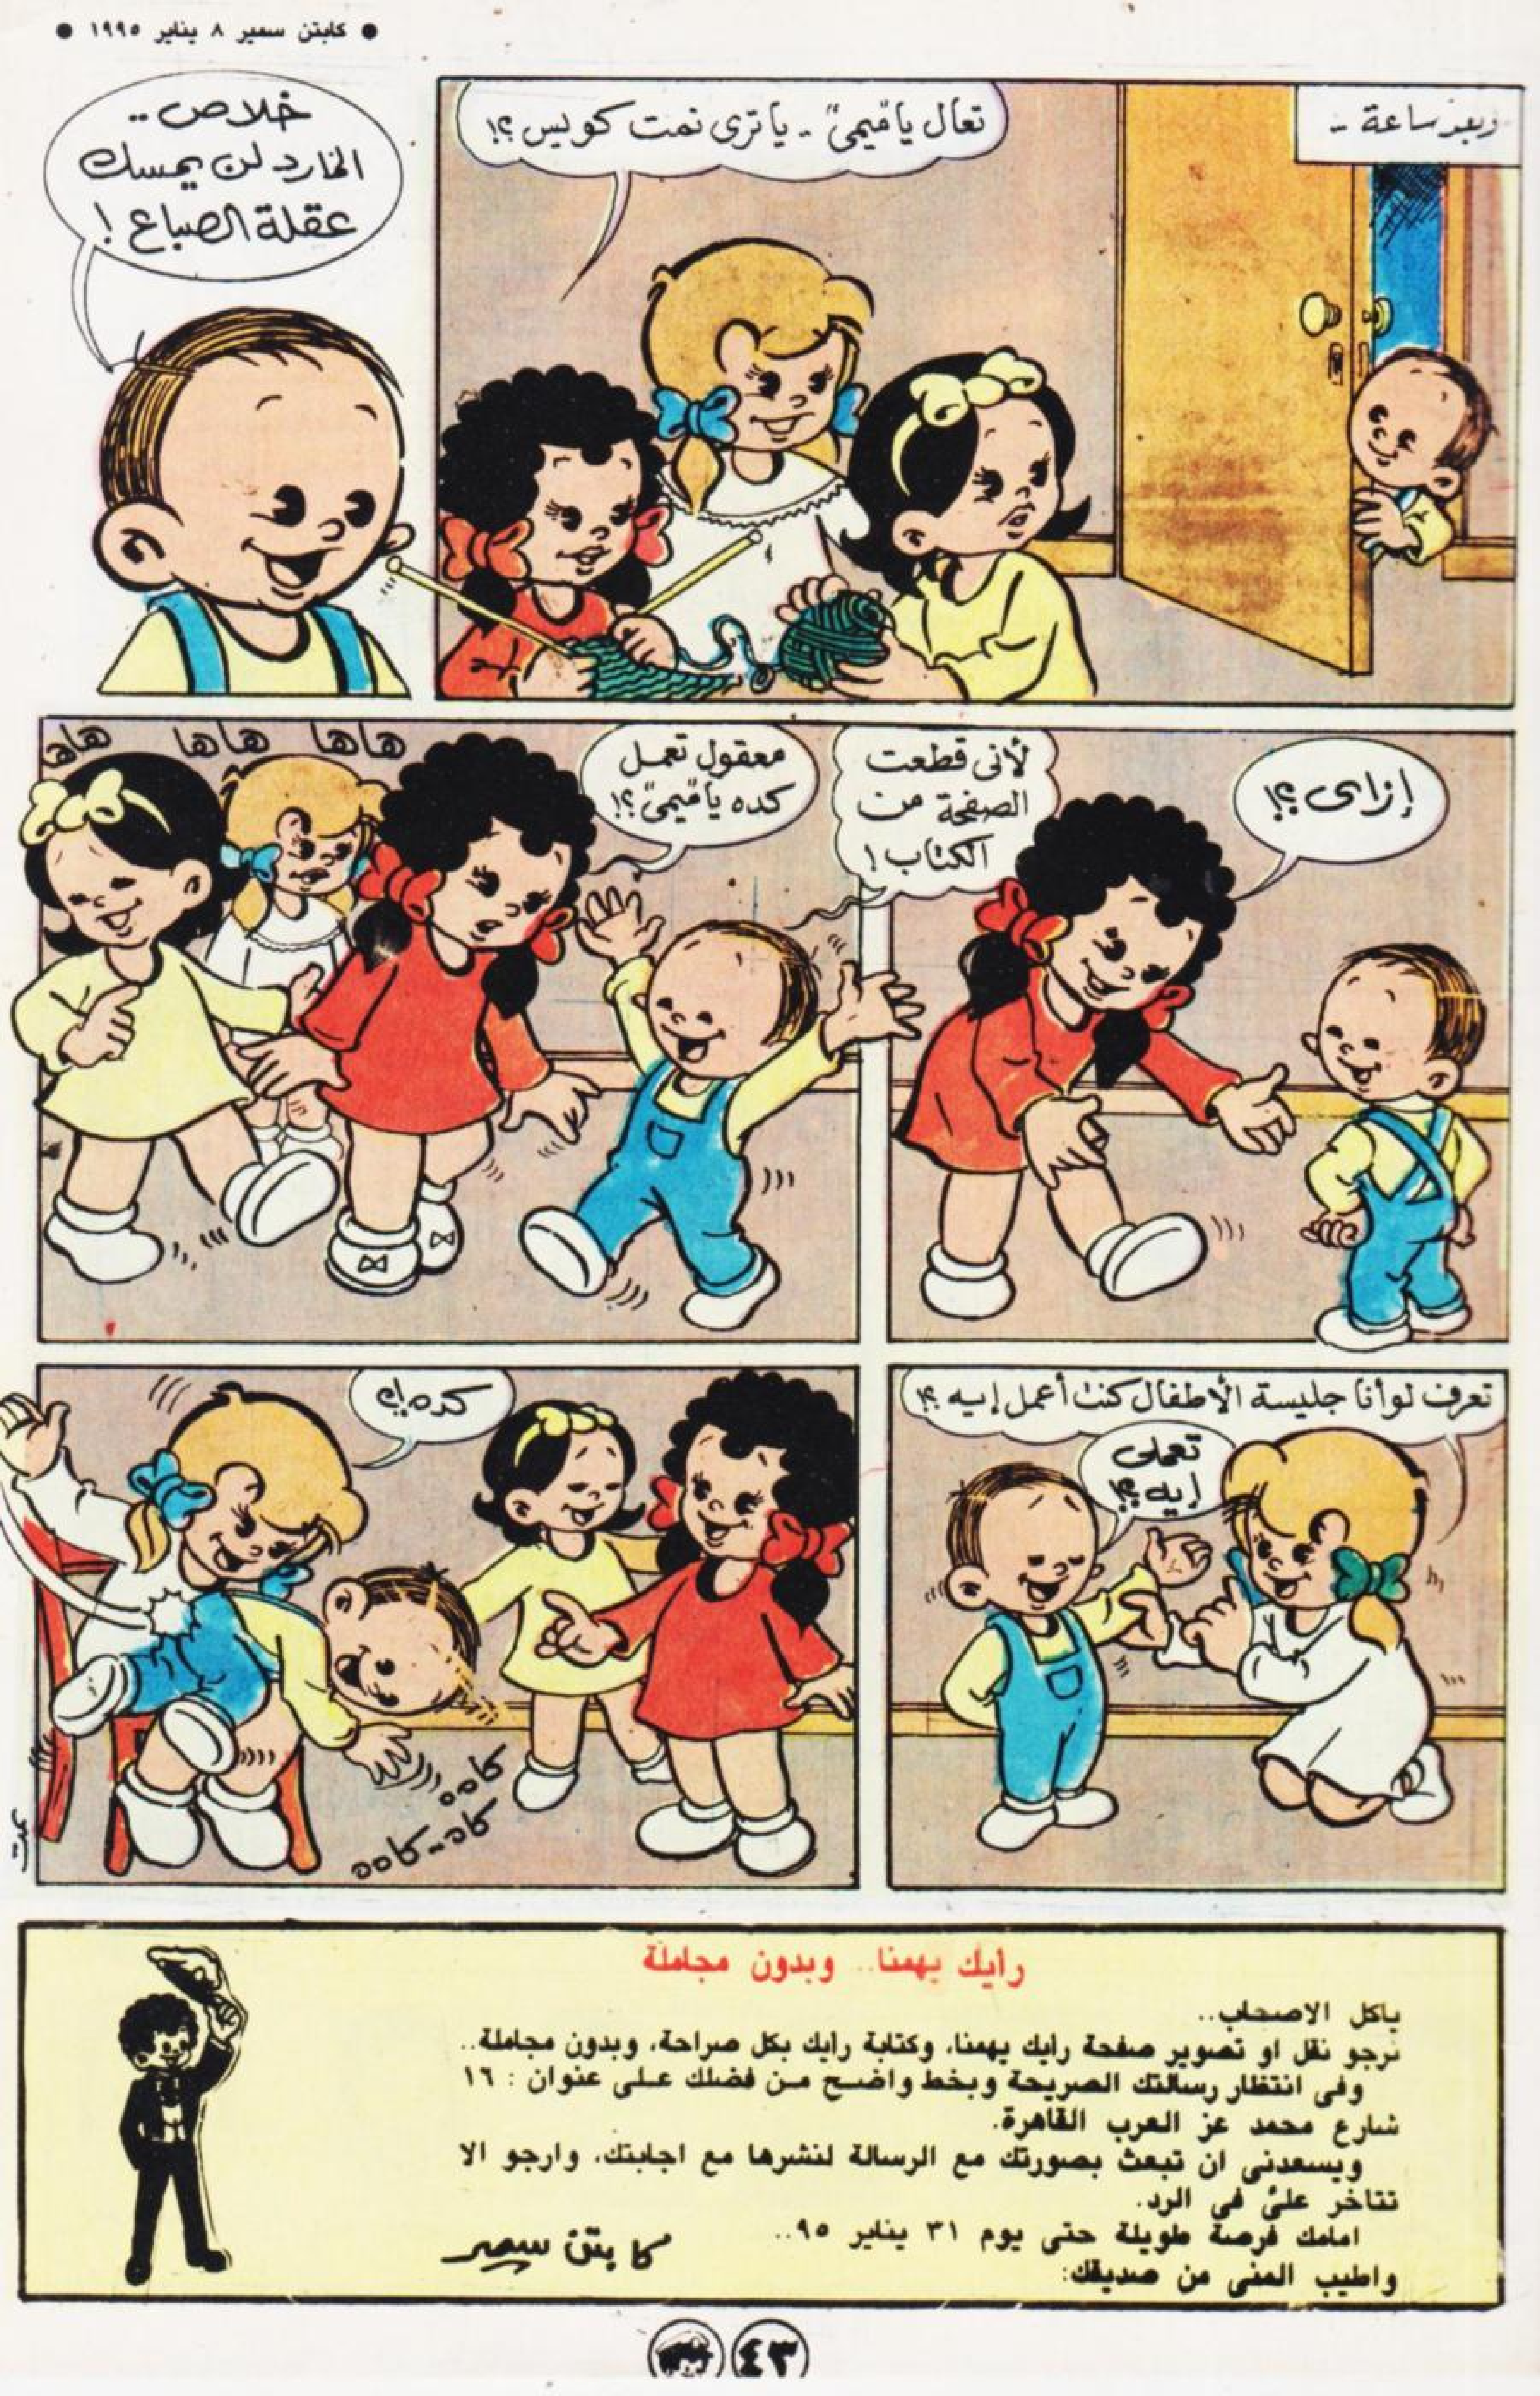 ● كابتن سمير ٨ يناير ١٩٩٥ ●
وبعد ساعة --
تعال يا "ميمى" -- يا ترى نمت كويس ؟!
خلاص ..
المارد لن يمسك
عقلة الصباع !
إزاى ؟!
لأنى قطعت
الصفحة من
الكتاب !
معقول تعمل
كده يا "ميمى" ؟!
هاها هاها هاها
تعرف لو أنا جليسة الأطفال كنت أعمل إيه ؟!
تعملى
إيه ؟!
كده !؟
رأيك يهمنا.. وبدون مجاملة
ياكل الاصحاب..
نرجو نقل او تصوير صفحة رايك يهمنا، وكتابة رايك بكل صراحة، وبدون مجاملة..
وفى انتظار رسالتك الصريحة وبخط واضح من فضلك على عنوان : ١٦
شارع محمد عز العرب القاهرة.
ويسعدنى ان تبعث بصورتك مع الرسالة لنشرها مع اجابتك، وارجو الا
تتاخر علىّ فى الرد.
امامك فرصة طويلة حتى يوم ٣١ يناير ٩٥..
واطيب المنى من صديقك:
كابتن سمير
٤٣